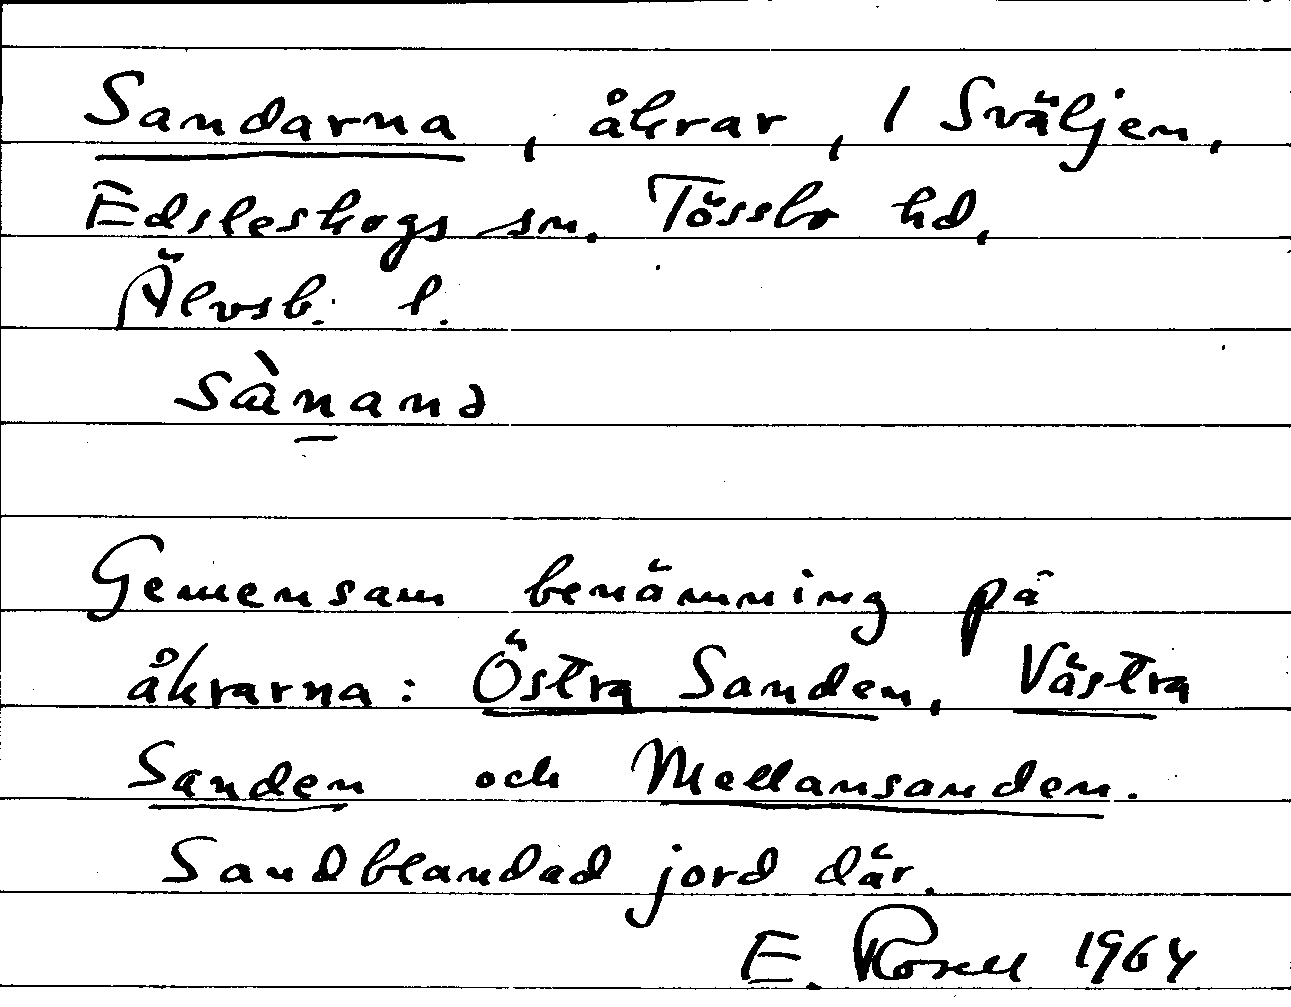 Sandarna, åkrar, 1 Sväljen,
Edsleskogs sn. Tössbo hd,
Älvsb. l.
sànanə
Gemensam benämning på
åkrarna: Östra Sanden, Västra
Sanden och Mellansanden.
Sandblandad jord där.
E. Rosell 1964